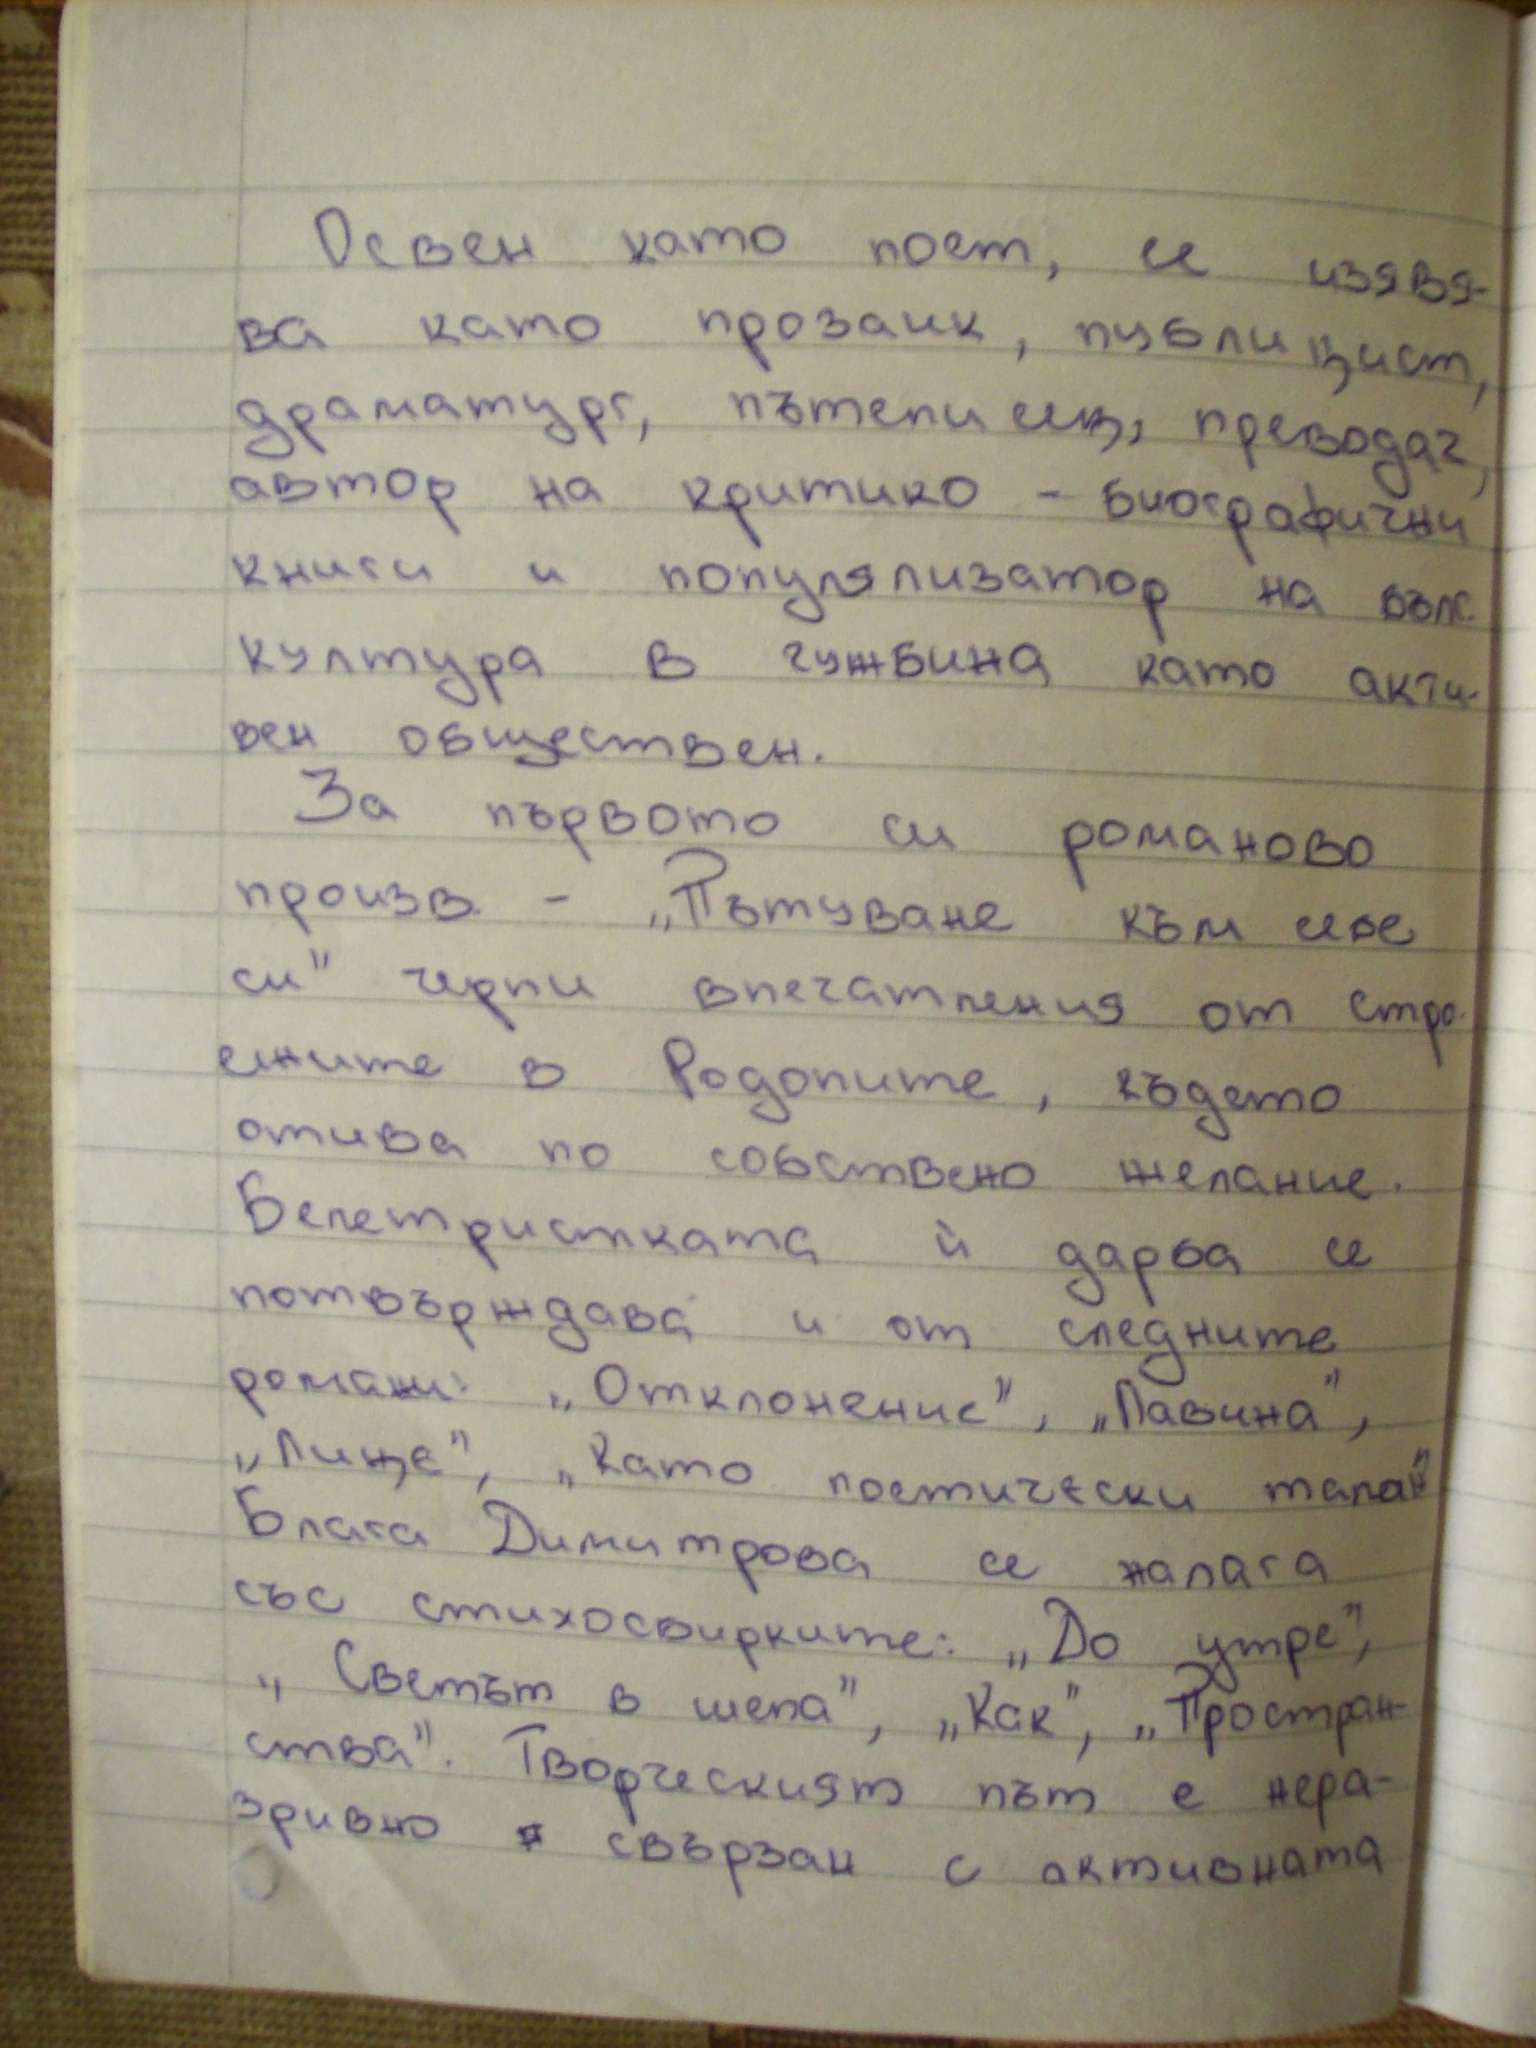 Освен като поет, се изявя-
ва като прозаик, публицист,
драматург, пътеписец, преводач,
автор на критико - биографични
книги и популялизатор на бълг.
култура в чужбина като акти-
вен обществен.
За първото си романово
произв. - „Пътуване към себе
си" черпи впечатления от стро-
ежите в Родопите, където
отива по собствено желание.
Белетристката ѝ дарба се
потвърждава и от следните
романи: „Отклонение", „Лавина",
„Лице", „Като поетически талант
Блага Димитрова се налага
със стихосбирките: „До утре",
„Светът в шепа", „Как", „Простран-
ства". Творческият път е нера-
зривно свързан с активната